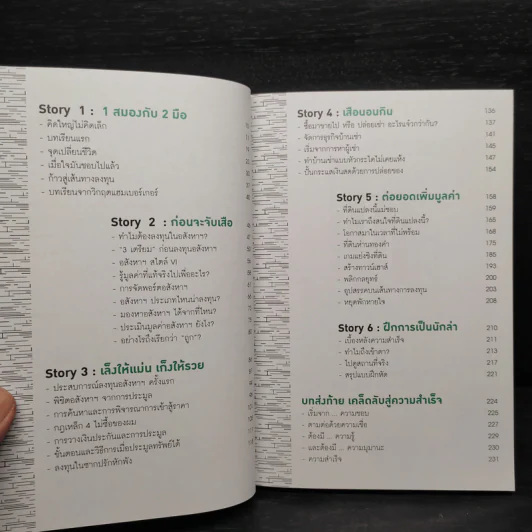 Story 1 : 1 สมองกับ 2 มือ
- คิดใหญ่ไม่คิดเล็ก
- บทเรียนแรก
- จุดเปลี่ยนชีวิต
- เมื่อใจมันชอบไปแล้ว
- ก้าวสู่เส้นทางลงทุน
- บทเรียนจากวิกฤตแฮมเบอร์เกอร์
Story 2 : ก่อนจะจับเสือ
- ทำไมต้องลงทุนในอสังหาฯ?
- "3 เตรียม" ก่อนลงทุนอสังหาฯ
- อสังหาฯ สไตล์ VI
- รู้มูลค่าที่แท้จริงไปเพื่ออะไร?
- การจัดพอร์ตอสังหาฯ
- อสังหาฯ ประเภทไหนน่าลงทุน?
- มองหาอสังหาฯ ได้จากที่ไหน?
- ประเมินมูลค่าอสังหาฯ ยังไง?
- อย่างไรถึงเรียกว่า "ถูก"?
Story 3 : เล็งให้แม่น เก็งให้รวย
- ประสบการณ์ลงทุนอสังหาฯ ครั้งแรก
- พิชิตอสังหาฯ จากการประมูล
- การค้นหาและการพิจารณาการเข้าสู้ราคา
- กฎเหล็ก 4 ไม่ซื้อของผม
- การวางเงินประกันและการประมูล
- ขั้นตอนและวิธีการเมื่อประมูลทรัพย์ได้
- ลงทุนในซากปรักหักพัง
Story 4 : เสือนอนกิน 136
- ซื้อมาขายไป หรือ ปล่อยเช่า อะไรแจ๋วกว่ากัน? 137
- จัดการธุรกิจบ้านเช่า 141
- เริ่มจากการหาผู้เช่า 145
- ทำบ้านเช่าแบบหัวกระไดไม่เคยแห้ง 147
- ปั้นกระแสเงินสดด้วยการปล่อยของ 154
Story 5 : ต่อยอดเพิ่มมูลค่า 158
- ที่ดินแปลงนี้แม่ชอบ 159
- ทำไมเราถึงสนใจที่ดินแปลงนี้? 165
- โอกาสมาในเวลาที่ไม่พร้อม 168
- ที่ดินย่านทองคำ 175
- เกมแย่งชิงที่ดิน 185
- สร้างทาวน์เฮาส์ 193
- พลิกกลยุทธ์ 200
- อุปสรรคบนเส้นทางการลงทุน 203
- หยุดพักหายใจ 208
Story 6 : ฝึกการเป็นนักล่า 210
- เบื้องหลังความสำเร็จ 211
- ทำไมถึงเช้าตา? 213
- ไปดูสถานที่จริง 217
- สรุปแบบฝึกหัด 221
บทส่งท้าย เคล็ดลับสู่ความสำเร็จ 224
- เริ่มจาก ... ความชอบ 225
- ตามต่อด้วยความเชื่อ 227
- ต้องมี ... ความรู้ 229
- และต้องมี ... ความมุมานะ 230
- ความสำเร็จ 231